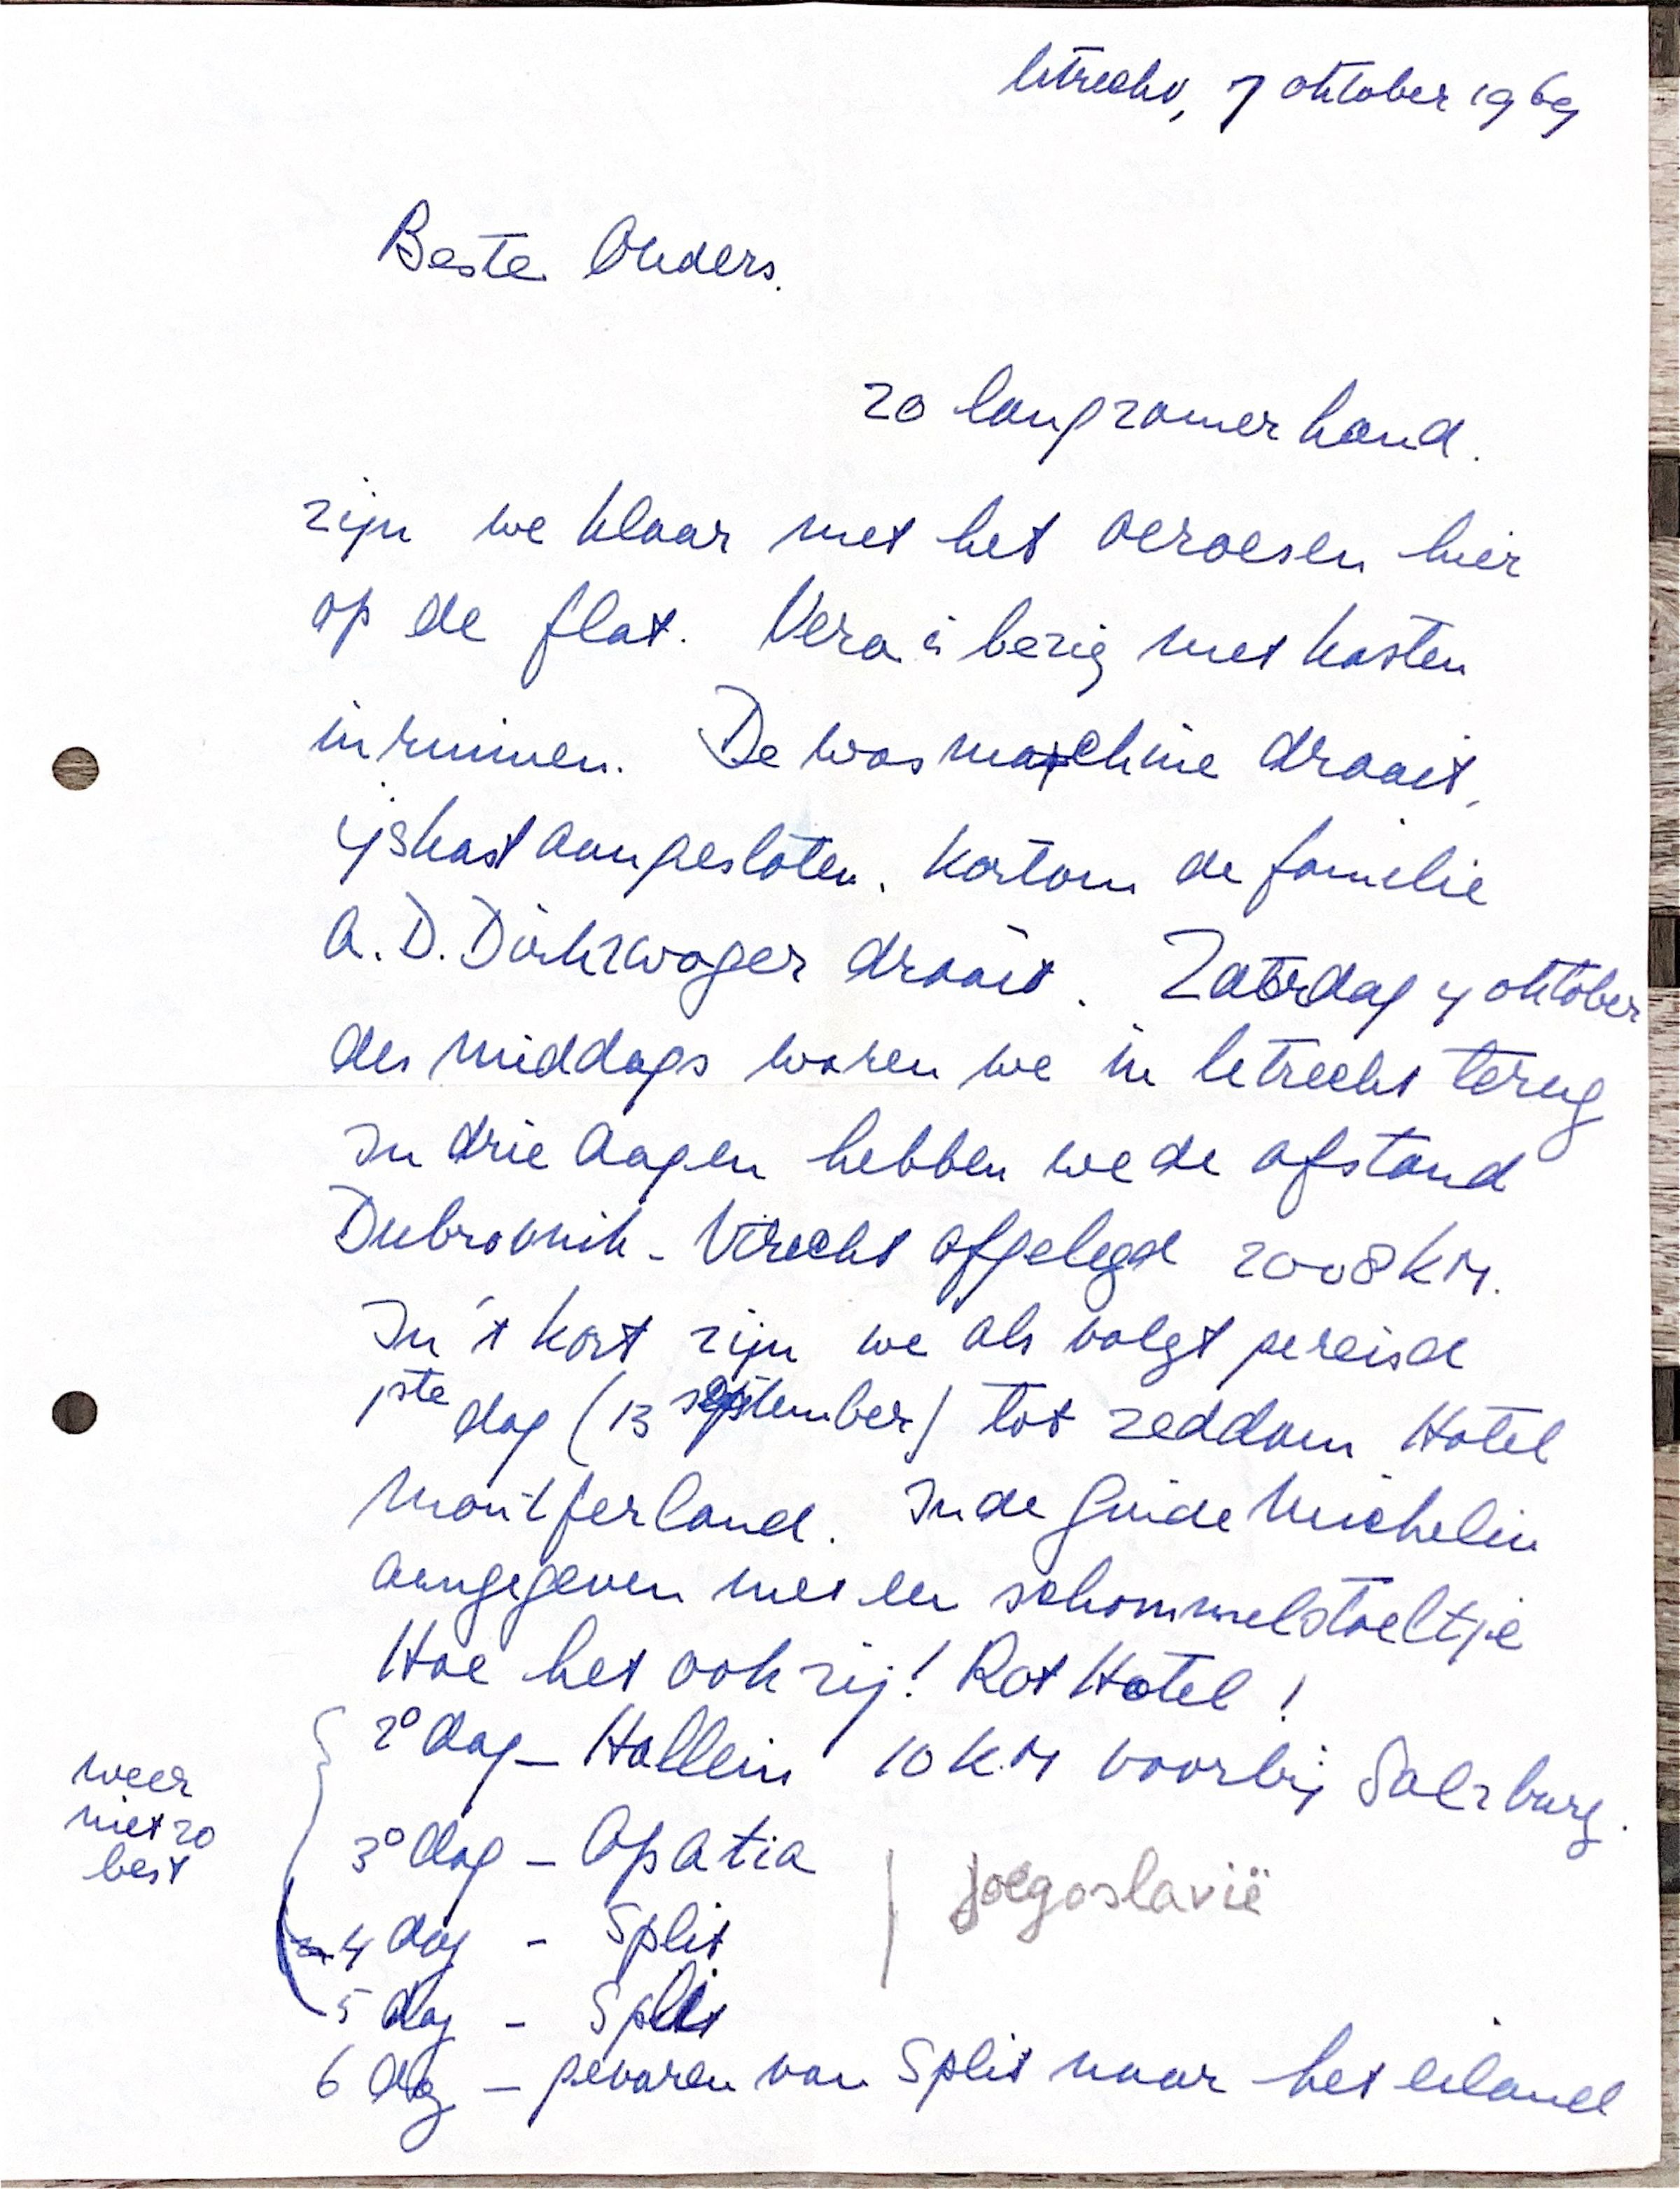 Utrecht, 7 oktober 1969
Beste Ouders.
zo langzamerhand.
zijn we klaar met het oeroesen hier
op de flat. Vera is bezig met kasten
inruimen. De wasmachine draait,
ijskast aangesloten. Kortom de familie
A. D. Dirkzwager draait. Zaterdag 4 oktober
des middags waren we in Utrecht terug
In drie dagen hebben we de afstand
Dubrovnik - Utrecht afgelegd 2008 KM.
In 't kort zijn we als volgt gereisd
1ste dag (13 september) tot Zeddam Hotel
Montferland. In de Guide Michelin
aangegeven met een schommelstoeltje
Hoe het ook zij! Rot Hotel!
2e dag - Hallein 10 KM voorbij Salzburg.
weer
niet zo
best
3e dag - Opatia
Joegoslavië
4 dag - Split
5 dag - Split
6 dag - gevaren van Split naar het eiland